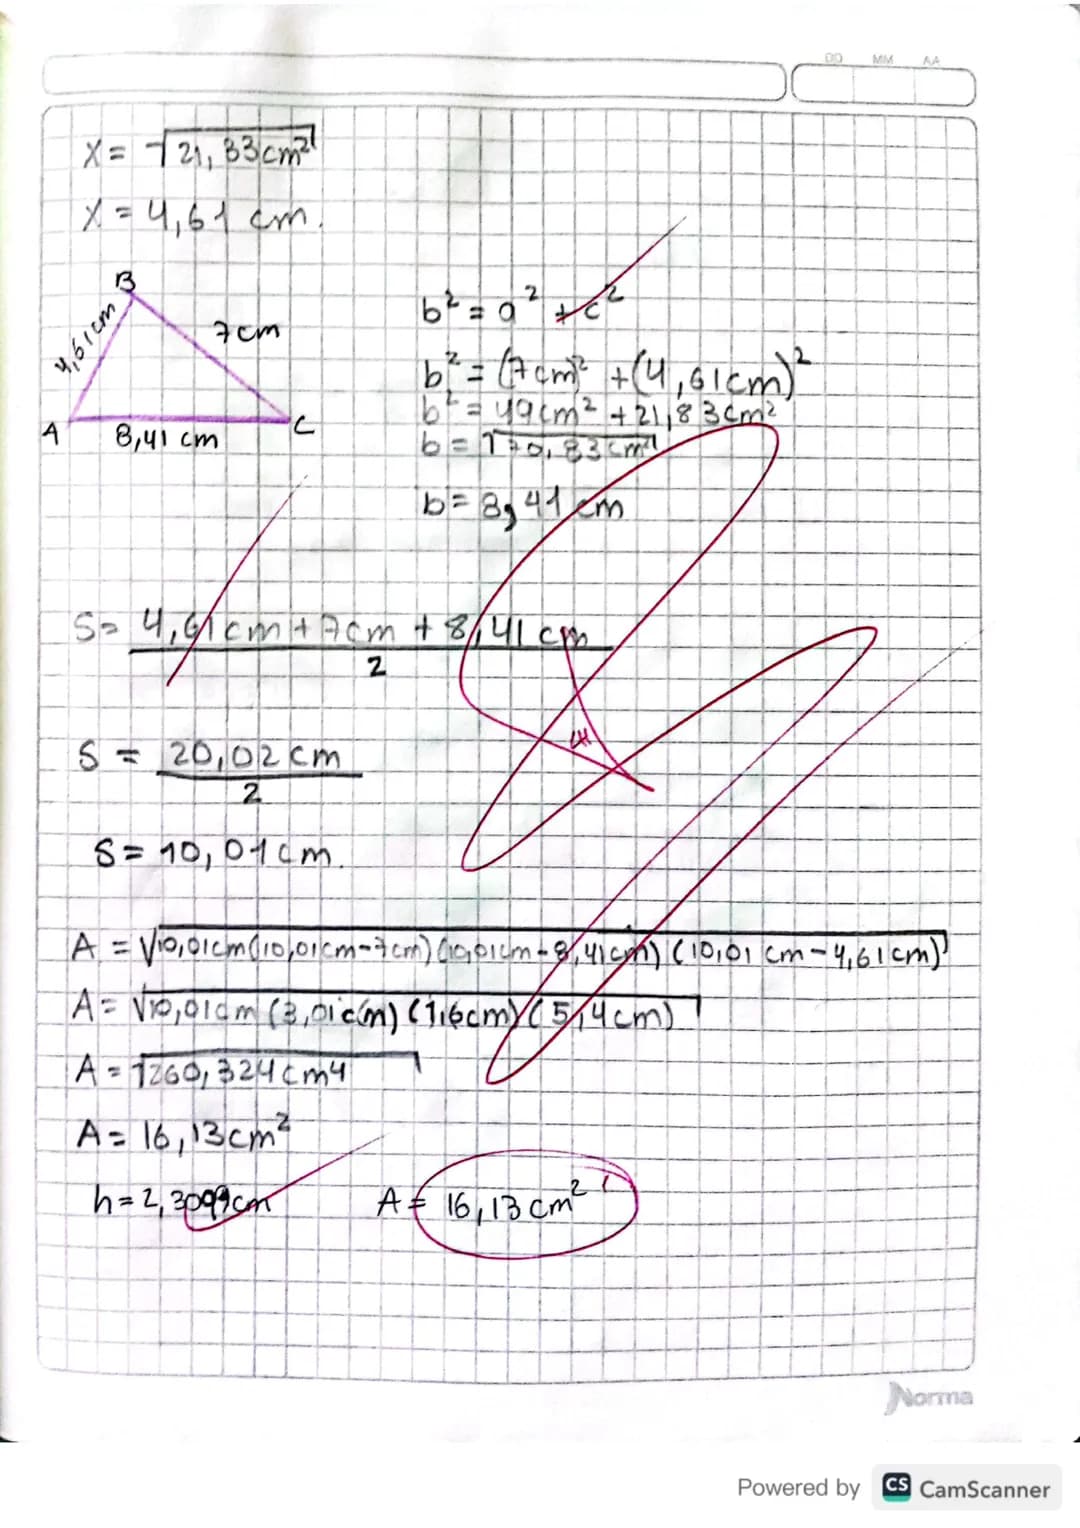 DD MM AA
X = √21,83cm²
X = 4,61 cm.
B
4,61cm
7cm
A
8,41 cm
C
b² = a² + c²
b² = (7cm)² + (4,61cm)²
b² = 49cm² + 21,83cm²
b = √70,83cm²
b = 8,41 cm
S = 4,61cm + 7cm + 8,41 cm
2
S = 20,02 cm
2
S = 10,01cm.
A = √10,01cm(10,01cm-7cm)(10,01cm-8,41cm)(10,01 cm-4,61cm)
A = √10,01cm(3,01cm)(1,6cm)(5,4cm)
A = √260,324cm4
A = 16,13cm²
h = 2,3099cm
A = 16,13cm²
Norma
Powered by CS CamScanner